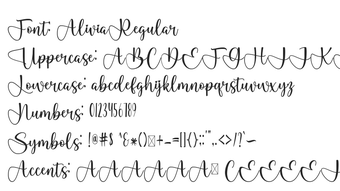 Font: Alivia Regular
Uppercase: ABCDEFGHIJK
Lowercase: abcdefghijklmnopqrstuvwxyz
Numbers: 0123456789
Symbols: !@#$ %&*()□+-=||{}:;'",.<>/?`~
Accents: AAAAAA□CEEEEI